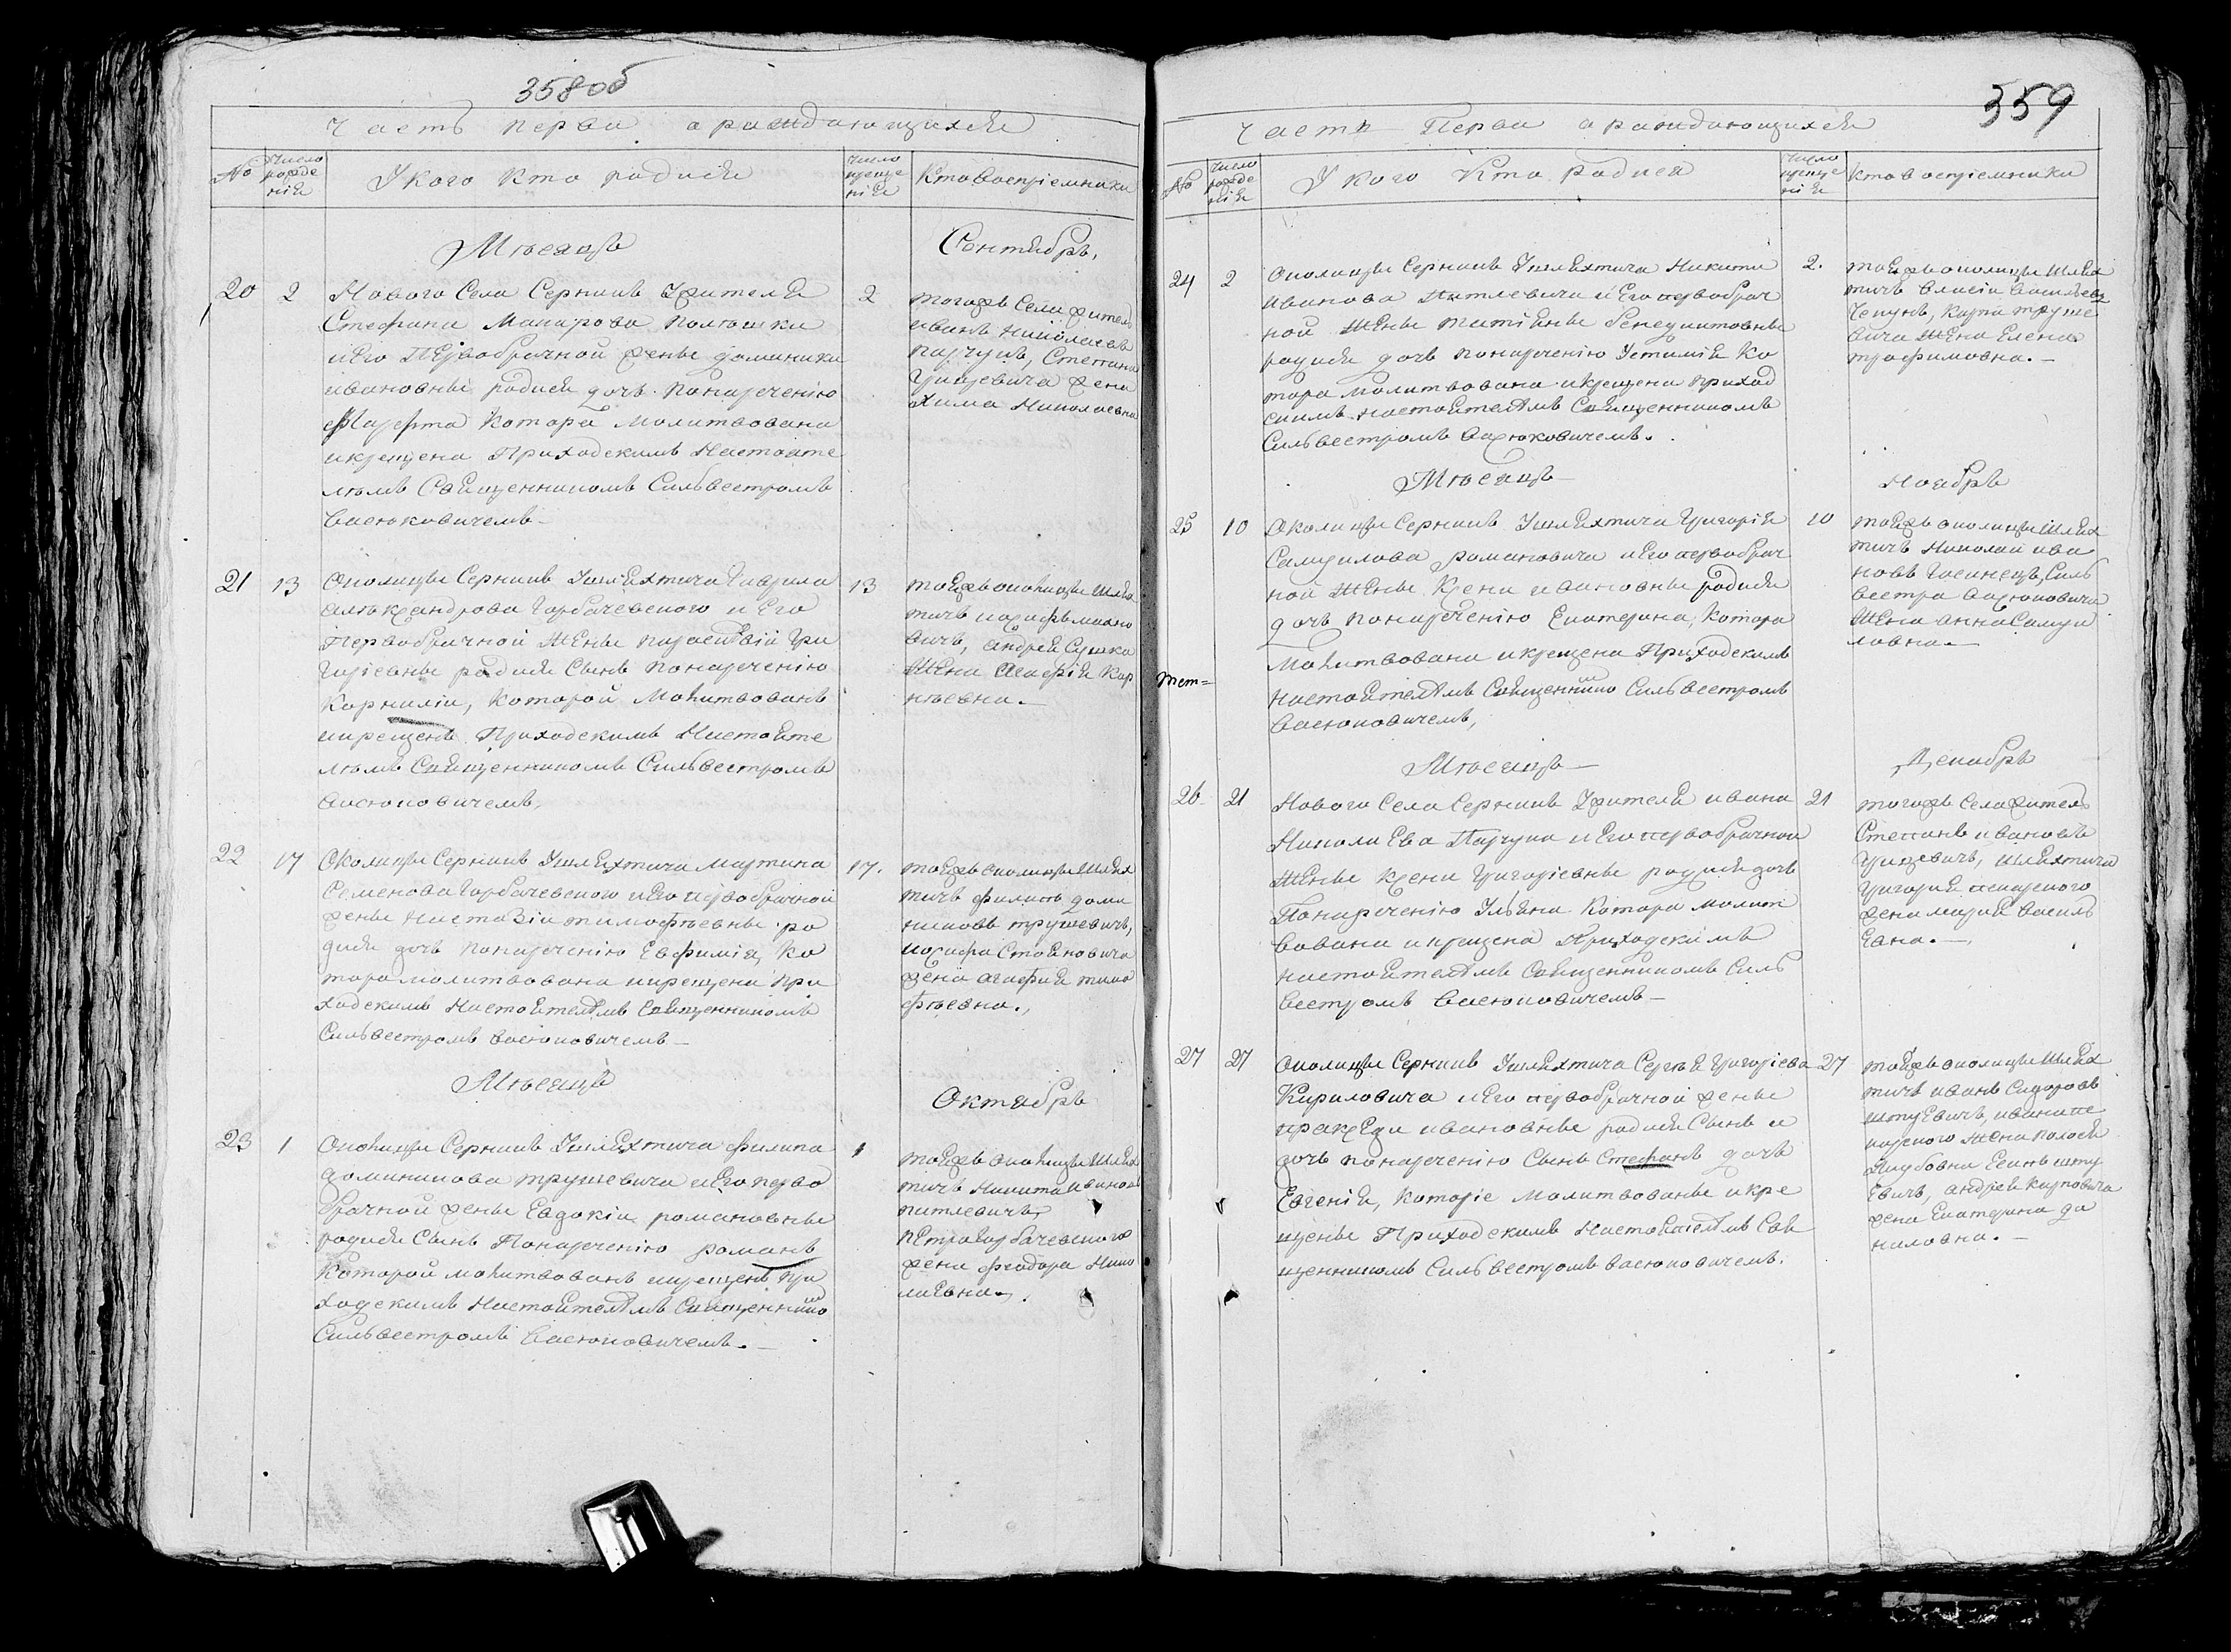 358об
Часть перва о раждающихся
№
Число рожде нія
У кого кто родися
Число креще нія
Кто Воспріемники
Мѣсяцъ
Сентябрь,
20
2
Нового Села Серникъ Ужителя
Стефана Макарова
и его Первобрачной жены доминики
ивановны родися дочь понаречению
Марфта Котора Молитвована
икрещена Приходскимъ Настояте
лемъ Священникомъ Сильвестромъ
Васюковичемъ
2
тогожъ Села житель
иванъ николаевъ
парчукъ, Степана
Грицевича жена
Хима Николаевна
21
13
Околицы Серникъ Ушляхтича Гаврила
александрова Горбачевского и Его
Первобрачной Жены параскевіи Гри
горіевны родися Сынъ понаречению
Корниліи, Которой Молитвованъ
икрещенъ Приходскимъ Настояте
лемъ Священникомъ Сильвестромъ
Васюковичемъ,
13
тояжъ околицы Шлях
тичъ иосифъ
вичъ, андрея Сушка
Жена Агафія Кор
нѣевна.
22
17
Околицы Серникъ Ушляхтича Мартина
Семенова Горбачевского иего первобрачной
жены Настазіи тимофѣевны ро
дися дочь понаречению Евфимія, Ко
тора молитвована икрещена при
ходскимъ Настоятелямъ Священникомъ
Сильвестромъ Васюковичемъ
17.
тояжъ околицы Шлях
тичъ филипъ доми
никовъ трушевичъ,
иосифа Стояновича
жена агафия тимо
фѣевна.,
Мѣсяцъ
Октябрь
23
1
Околицы Серникъ Ушляхтича филипа
доминикова трушевича иего перво
брачной жены Евдокіи романовны
родися Сынъ Понаречению романъ
Которой молитвованъ икрещенъ при
ходскимъ Настоятелямъ Священнико
Сильвестромъ Васюковичемъ.
1
тояжъ околицы Шлях
тичъ Никита Иванов
питлевичъ,
петра Горбачевского
жена феодора Нико
лаевна.
359
Часть Перва о раждающихся
№
Число рожде нія
У кого Кто родися
Число креще нія
кто воспріемники
24
2
Околицы Серникъ Ушляхтича Никити
Иванова Питлевича и Его первобрач
ной Жены татіяны бенедиктовны
родися дочь понаречению Устимія Ко
тора молитвована икрещена приход
скимъ настоятелямъ Священникомъ
Сильвестромъ Васюковичемъ.
2.
тояжъ околицы Шлях
тичъ Власіи Васильевъ
Чепунъ, Карпа труше
вича Жена Елена
трофимовна.
Мѣсяцъ
Ноябрь
25
10
Околицы Серникъ Ушляхтича Григорія
Самуилова романовича иего первобрач
ной Жены Ксени ивановны родися
дочь понаречению Екатерина, Котора
Молитвована икрещена Приходскимъ
настоятелямъ Священнико Сильвестромъ
Васюковичемъ,
10
тояжъ околицы Шлях
тичъ Николай ива
новъ Гасинецъ, Силь
вестра Васюковича
Жена Анна Самуи
ловна.
Мет=
Мѣсяцъ
Декабрь
26
21
Нового Села Серникъ Ужителя ивана
Николаева Парчука иего первобрачной
Жены Ксени Григоріевны родися дочь
Понаречению Ульяна Котора молит
вована икрещена Приходскимъ
настоятелямъ Священникомъ Силь
вестромъ Васюковичемъ
21
тогожъ Села житель
Степанъ ивановъ
Грицевичъ, шляхтича
Григорія
жена марія Василь
евна.
27
27
Околицы Серникъ Ушляхтича Сергѣя Григоріева
Кириловича иего первобрачной жены
пракседи ивановны родися Сынъ и
дочь понаречению Сынъ Стефанъ дочь
Евгенія, которіе Молитвованы икре
щены Приходскимъ Настоятелямъ Свя
щенникомъ Сильвестромъ Васюковичемъ.
27
тояжъ околицы Шлях
тичъ иванъ Сидоровъ
штуевичъ, ивана
Жена
Якубовна Есипъ шту
евичъ, андрея Карповича
жена Екатерина да
ниловна.